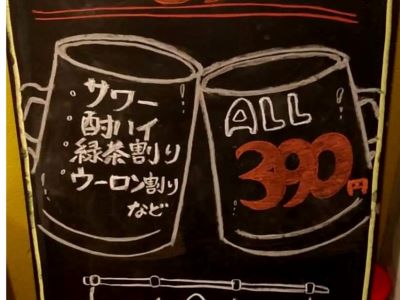 サワー
酎ハイ
緑茶割り
ウーロン割り
など
ALL
390円